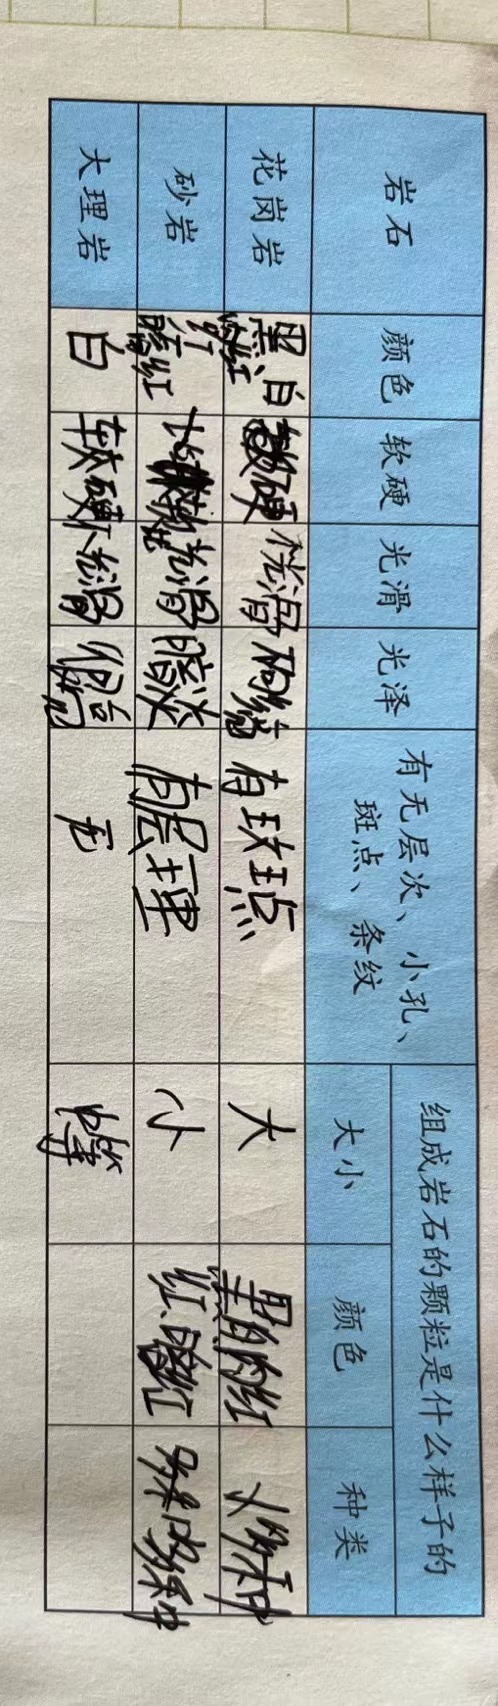 岩石 颜色 软硬 光滑 光泽 有无层次、小孔、斑点、条纹 组成岩石的颗粒是什么样子的
大小 颜色 种类
花岗岩 黑、白 硬 光滑 有斑点 大 黑 肉红 多种
砂岩 红 暗红 光滑 暗淡 有层理 小 红、暗红 多种
大理岩 白 软硬 不光滑 无